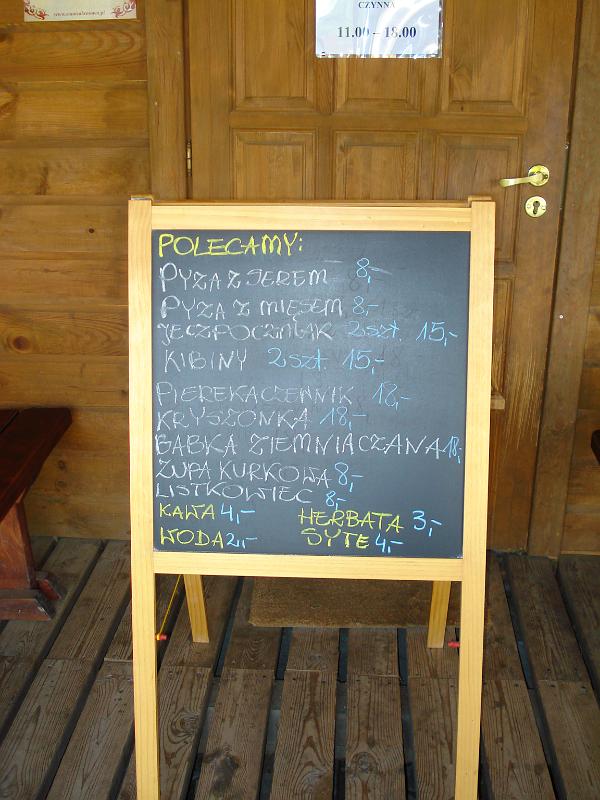 CZYNNA
11.00 – 18.00
POLECAMY:
PYZA Z SEREM 8,-
PYZA Z MIĘSEM 8,-
JECZPOCZMAK 2szt. 15,-
KIBINY 2szt. 15,-
PIEREKACZEWNIK 18,-
KRYSZONKA 18,-
BABKA ZIEMNIACZANA 18,-
ZUPA KURKOWA 8,-
LISTKOWIEC 8,-
KAWA 4,- HERBATA 3,-
WODA 2,- SYTE 4,-